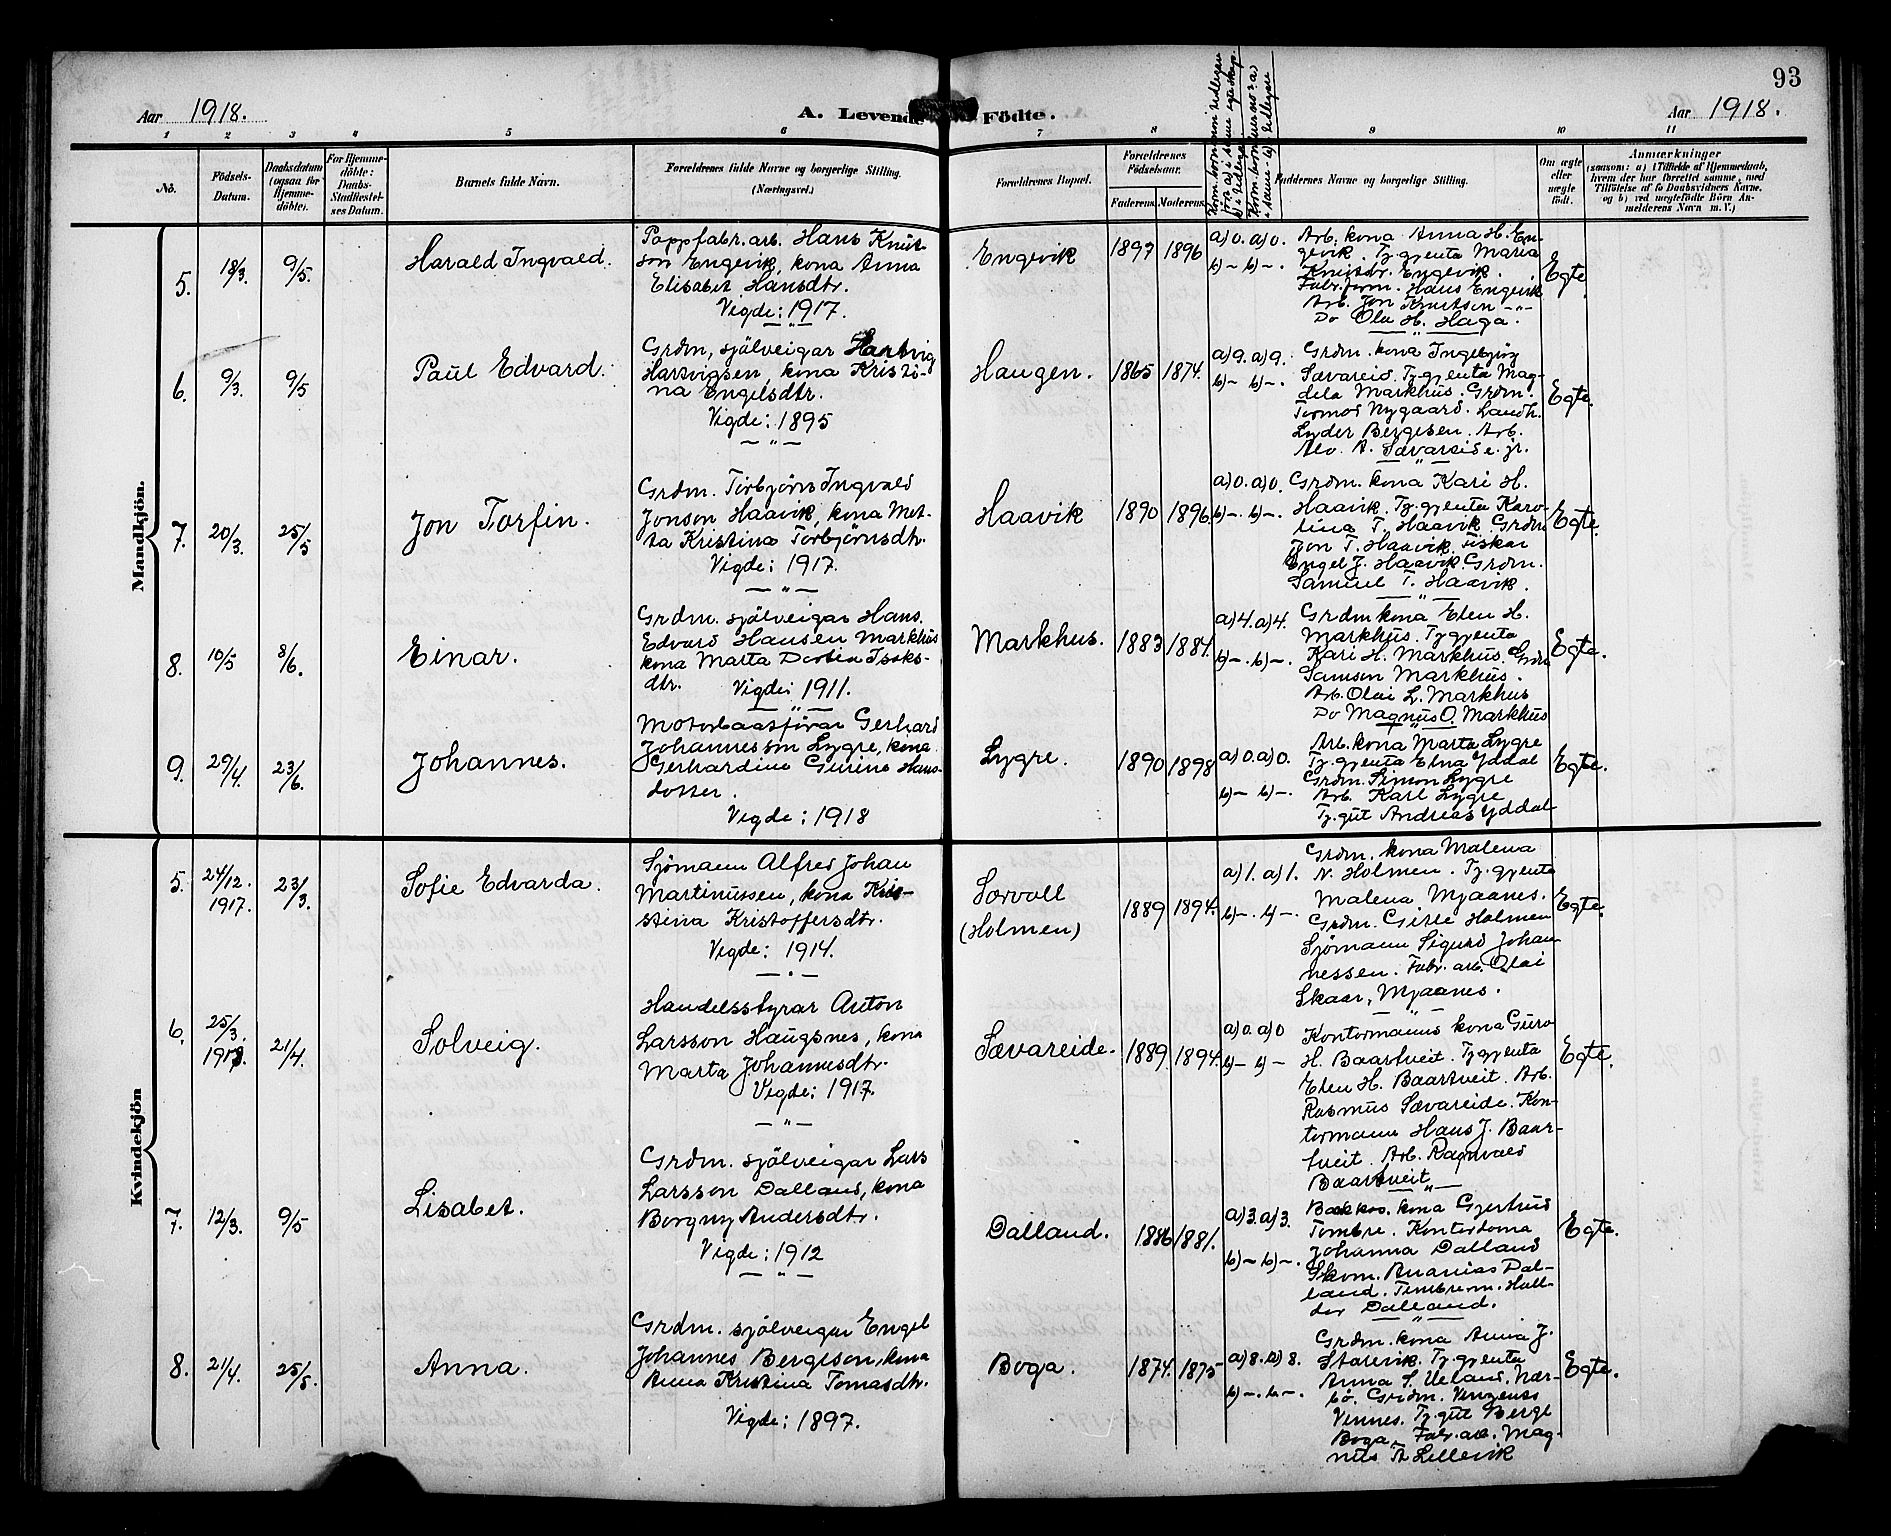 93
Aar 1918.
A. Levende Födte.
Aar 1918.
1 2 3 4 5 6 7 8 9 10 11
No.
Födsels-
Datum.
Daabsdatum
(ogsaa for
Hjemme-
döbte).
For Hjemme-
döbte:
Daabs-
Stadfæstel-
ses Datum.
Barnets fulde Navn.
Forældrenes fulde Navne og borgerlige Stilling.
(Næringsvei.)
Forældrenes Bopæl.
Forældrenes
Födselsaar.
Faderens. Moderens.
Faddernes Navne og borgerlige Stilling.
Om ægte
eller
uægte
födt.
Anmærkninger
(saasom: a) i Tilfælde af Hjemmedaab,
hvem der har forrettet samme, med
Tilföielse af to Daabsvidners Navne,
og b) ved uægtefödte Börn An-
melderens Navn m. V.)
Mandkjön.
5. 18/3. 9/5.
Harald Ingvald.
Pappfabr. arb. Hans Knut-
son Engevik, kona Anna
Elisabet Hansdtr.
Vigde: 1917.
Engevik 1897 1896
a)0. a)0.
b)- b)-.
Arb. kona Anna H. En-
gevik. Tj.gjenta Maria
Knutsdr. Engevik.
Fabr.form. Hans Engevik
Arb. Jon Knutson -"-
Do Ola H. Haga.
Egte.
6. 9/3. 9/5
Paul Edvard.
Grdm, själveigar Hartvig
Hartvigsen, kona Kristi-
na Engelsdtr.
Vigde: 1895
Haugen. 1865 1874.
a)9. a)9.
b)- b)-.
Grdm. kona Ingebjög
Sævareid. Tj.gjenta Mag-
dela Markhus. Grdm.
Tormod Nygaard. Landh.
Lyder Bergesen. Arb.
Alv. A. Sævareide. jr.
Egte.
7. 20/3. 25/5
Jon Torfin.
Grdm. Torbjørn Ingvald
Jonson Haavik, kona Met-
ta Kristina Torbjørnsdtr.
Vigde: 1917.
Haavik 1890 1896.
a)0. a)0.
b)-. b)-.
Grdm. kona Kari H.
Haavik. Tj.gjenta Karo-
lina T. Haavik. Grdm
Jon T. Haavik. Fiskar
Engel J. Haavik. Grdm.
Samuel T. Haavik.
Egte.
8. 10/5 8/6.
Einar.
Grdm. själveigar Hans
Edvard Hansen Markhus
kona Marta Dortea Isaks-
dtr. Vigde: 1911.
Markhus. 1883 1884.
a)4. a)4.
b)-. b)-.
Grdm kona Elen H.
Markhus. Tj.gjenta
Kari H. Markhus. Grdm
Samson Markhus.
Arb. Olai L. Markhus
Do Magnus O. Markhus
Egte.
9. 29/4. 23/6.
Johannes.
Motorbaatførar Gerhard
Johannesson Lygre, kona
Gerhardine Gurine Hans-
dotter.
Vigde: 1918
Lygre. 1890 1898
a)0. a)0.
b)- b)-.
Arb. kona Marta Lygre
Tj.gjenta Elna Yddal
Grdm. Simon Lygre
Arb. Karl Lygre
Tj.gut Andreas Yddal
Egte.
Kvindekjön
5. 24/12. 1917. 23/3.
Sofie Edvarda.
Sjømann Alfred Johan
Martinussen, kona Kris-
stina Kristoffersdtr.
Vigde: 1914.
Sorvoll
(Holmen)
1889 1894.
a)1. a)1.
b)-. b)-.
Grdm. kona Malena
N. Holmen. Tj.gjenta
Malena Mjaanes.
Grdm. Gitle Holmen
Sjømann Sigurd Johan-
nessen. Fabr. arb. Olai
Skaar, Mjaanes.
Egte.
6. 25/3. 1918. 21/4.
Solveig.
Handelsstyrar Anton
Larsson Haugsnes, kona
Marta Johannesdtr.
Vigde: 1917.
Sævareide. 1889. 1894.
a)0. a)0
b)- b)-
Kontormanns kona Guro
H. Baartveit. Tj.gjenta
Elen H. Baartveit. Arb.
Rasmus Sævareide. Kon-
tormann Hans J. Baar-
tveit. Arb. Ragnvald
Baartveit
Egte.
7. 12/3. 9/5
Lisabet.
Grdm. själveigar Lars
Larsson Dalland, kona
Borgny Andersdtr.
Vigde: 1912
Dalland. 1886 1881.
a)3. a)3.
b)- b)-.
Bakkos. kona Gjertrud
Tombre. Kontordama
Johanna Dalland
Skom. Ananias Dal-
land. Timbrerm. Hall-
dor Dalland.
Egte.
8. 21/4. 25/5.
Anna.
Grdm. själveigar Engel
Johannes Bergeson, kona
Anna Kristina Tomasdtr.
Vigde: 1897.
Boga. 1874. 1875
a)8. a)8.
b)-. b)-.
Grdm. kona Anna J.
Starevik. Tj.gjenta
Anna S. Ueland, Nær-
bø. Grdm. Vingens
Vinnes. Tj.gut Berge
Boga. Fabr.arb. Mag-
nus A Lellevik
Egte.